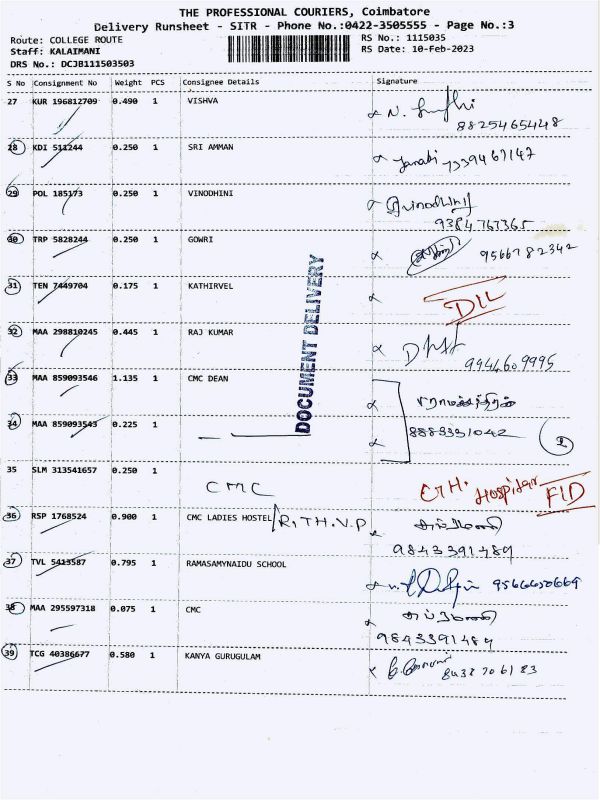 THE PROFESSIONAL COURIERS, Coimbatore
Delivery Runsheet - SITR - Phone No.:0422-3505555 - Page No.:3
Route: COLLEGE ROUTE
RS No.: 1115035
Staff: KALAIMANI
RS Date: 10-Feb-2023
DRS No.: DCJB111503503
S No Consignment No Weight PCS Consignee Details Signature
27 KUR 196812709 0.490 1 VISHVA
8825465448
28 KDI 511244 0.250 1 SRI AMMAN
Janaki 7339467147
29 POL 185173 0.250 1 VINODHINI
Vinodhini
9384767365
30 TRP 5828244 0.250 1 GOWRI
9566782342
31 TEN 7449704 0.175 1 KATHIRVEL
DIL
32 MAA 298810245 0.445 1 RAJ KUMAR
9944609995
33 MAA 859093546 1.135 1 CMC DEAN
34 MAA 859093543 0.225 1
8883331042
2
35 SLM 313541657 0.250 1
CMC
Hospital FID
36 RSP 1768524 0.900 1 CMC LADIES HOSTEL/R.TH.V.P
சுப்ரமணி
9843391489
37 TVL 5413587 0.795 1 RAMASAMYNAIDU SCHOOL
9566650669
38 MAA 295597318 0.075 1 CMC
சுப்ரமணி
9843391489
39 TCG 40386677 0.580 1 KANYA GURUGULAM
8438706183
DOCUMENT DELIVERY